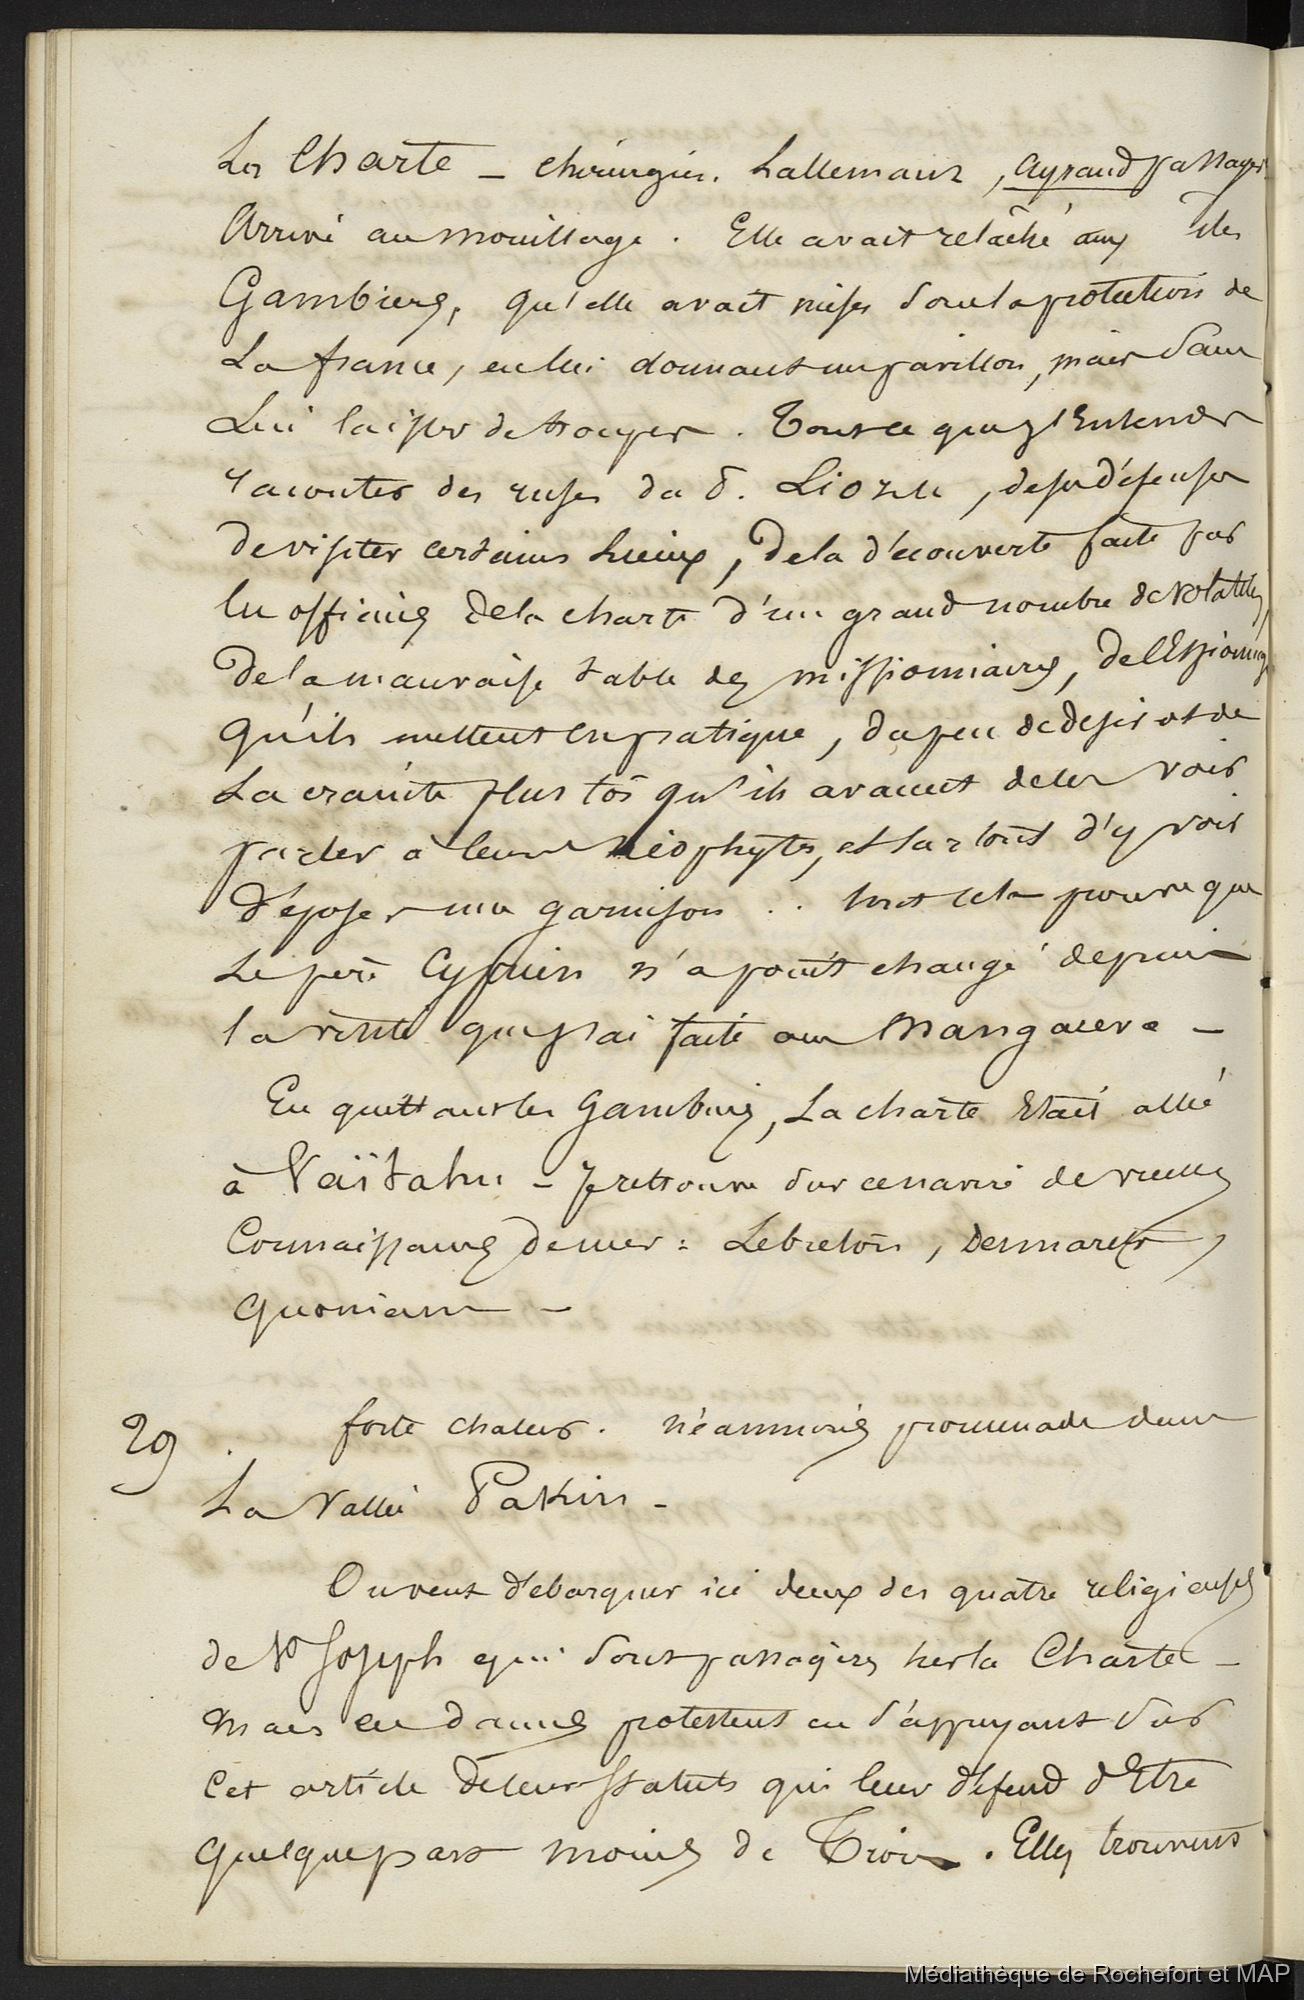 La Charte – chirurgien. Lallemant, Ayraud passager
Arrive au mouillage. Elle avait relâché aux îles
Gambiers, qu'elle avait mises sous la protection de
La france, en lui donnant un pavillon, mais sans
Lui laisser de troupes. Tout ce que j'Entends
raconter des ruses du d. Liozu, de ses défenses
de visiter certains Lieux, de la d'écouverte faite par
les officiers de la charte d'un grand nombre de volatiles,
De la mauvaise table des missionnaires, de l'Espionnage
qu'ils mettent en pratique, du peu de desir et de
La crainte plus tôt qu'ils avaient de les voir
parler à leurs Néophytes, et surtout d'y voir
déposer une garnison.. tout cela prouve que
Le père Cyprien n'a point changé depuis
la visite que j'ai faite aux Mangareva –
En quittant les Gambiers, La charte Etait allée
à Vaïtahu – Je retrouve sur ce navire de vieilles
Connaissances de mer : Lebreton, Desmarest,
Quoniam –
29. forte chaleur. néanmoins promenade dans
La vallée Pakiu –
On veut débarquer ici deux des quatre religieuses
de St Joseph qui sont passagères sur la Charte –
Mais ces dames protestent en s'appuyant sur
Cet article de leurs statuts qui leur défend d'Etre
quelque part moins de Trois. Elles trouvent
Médiathèque de Rochefort et MAP